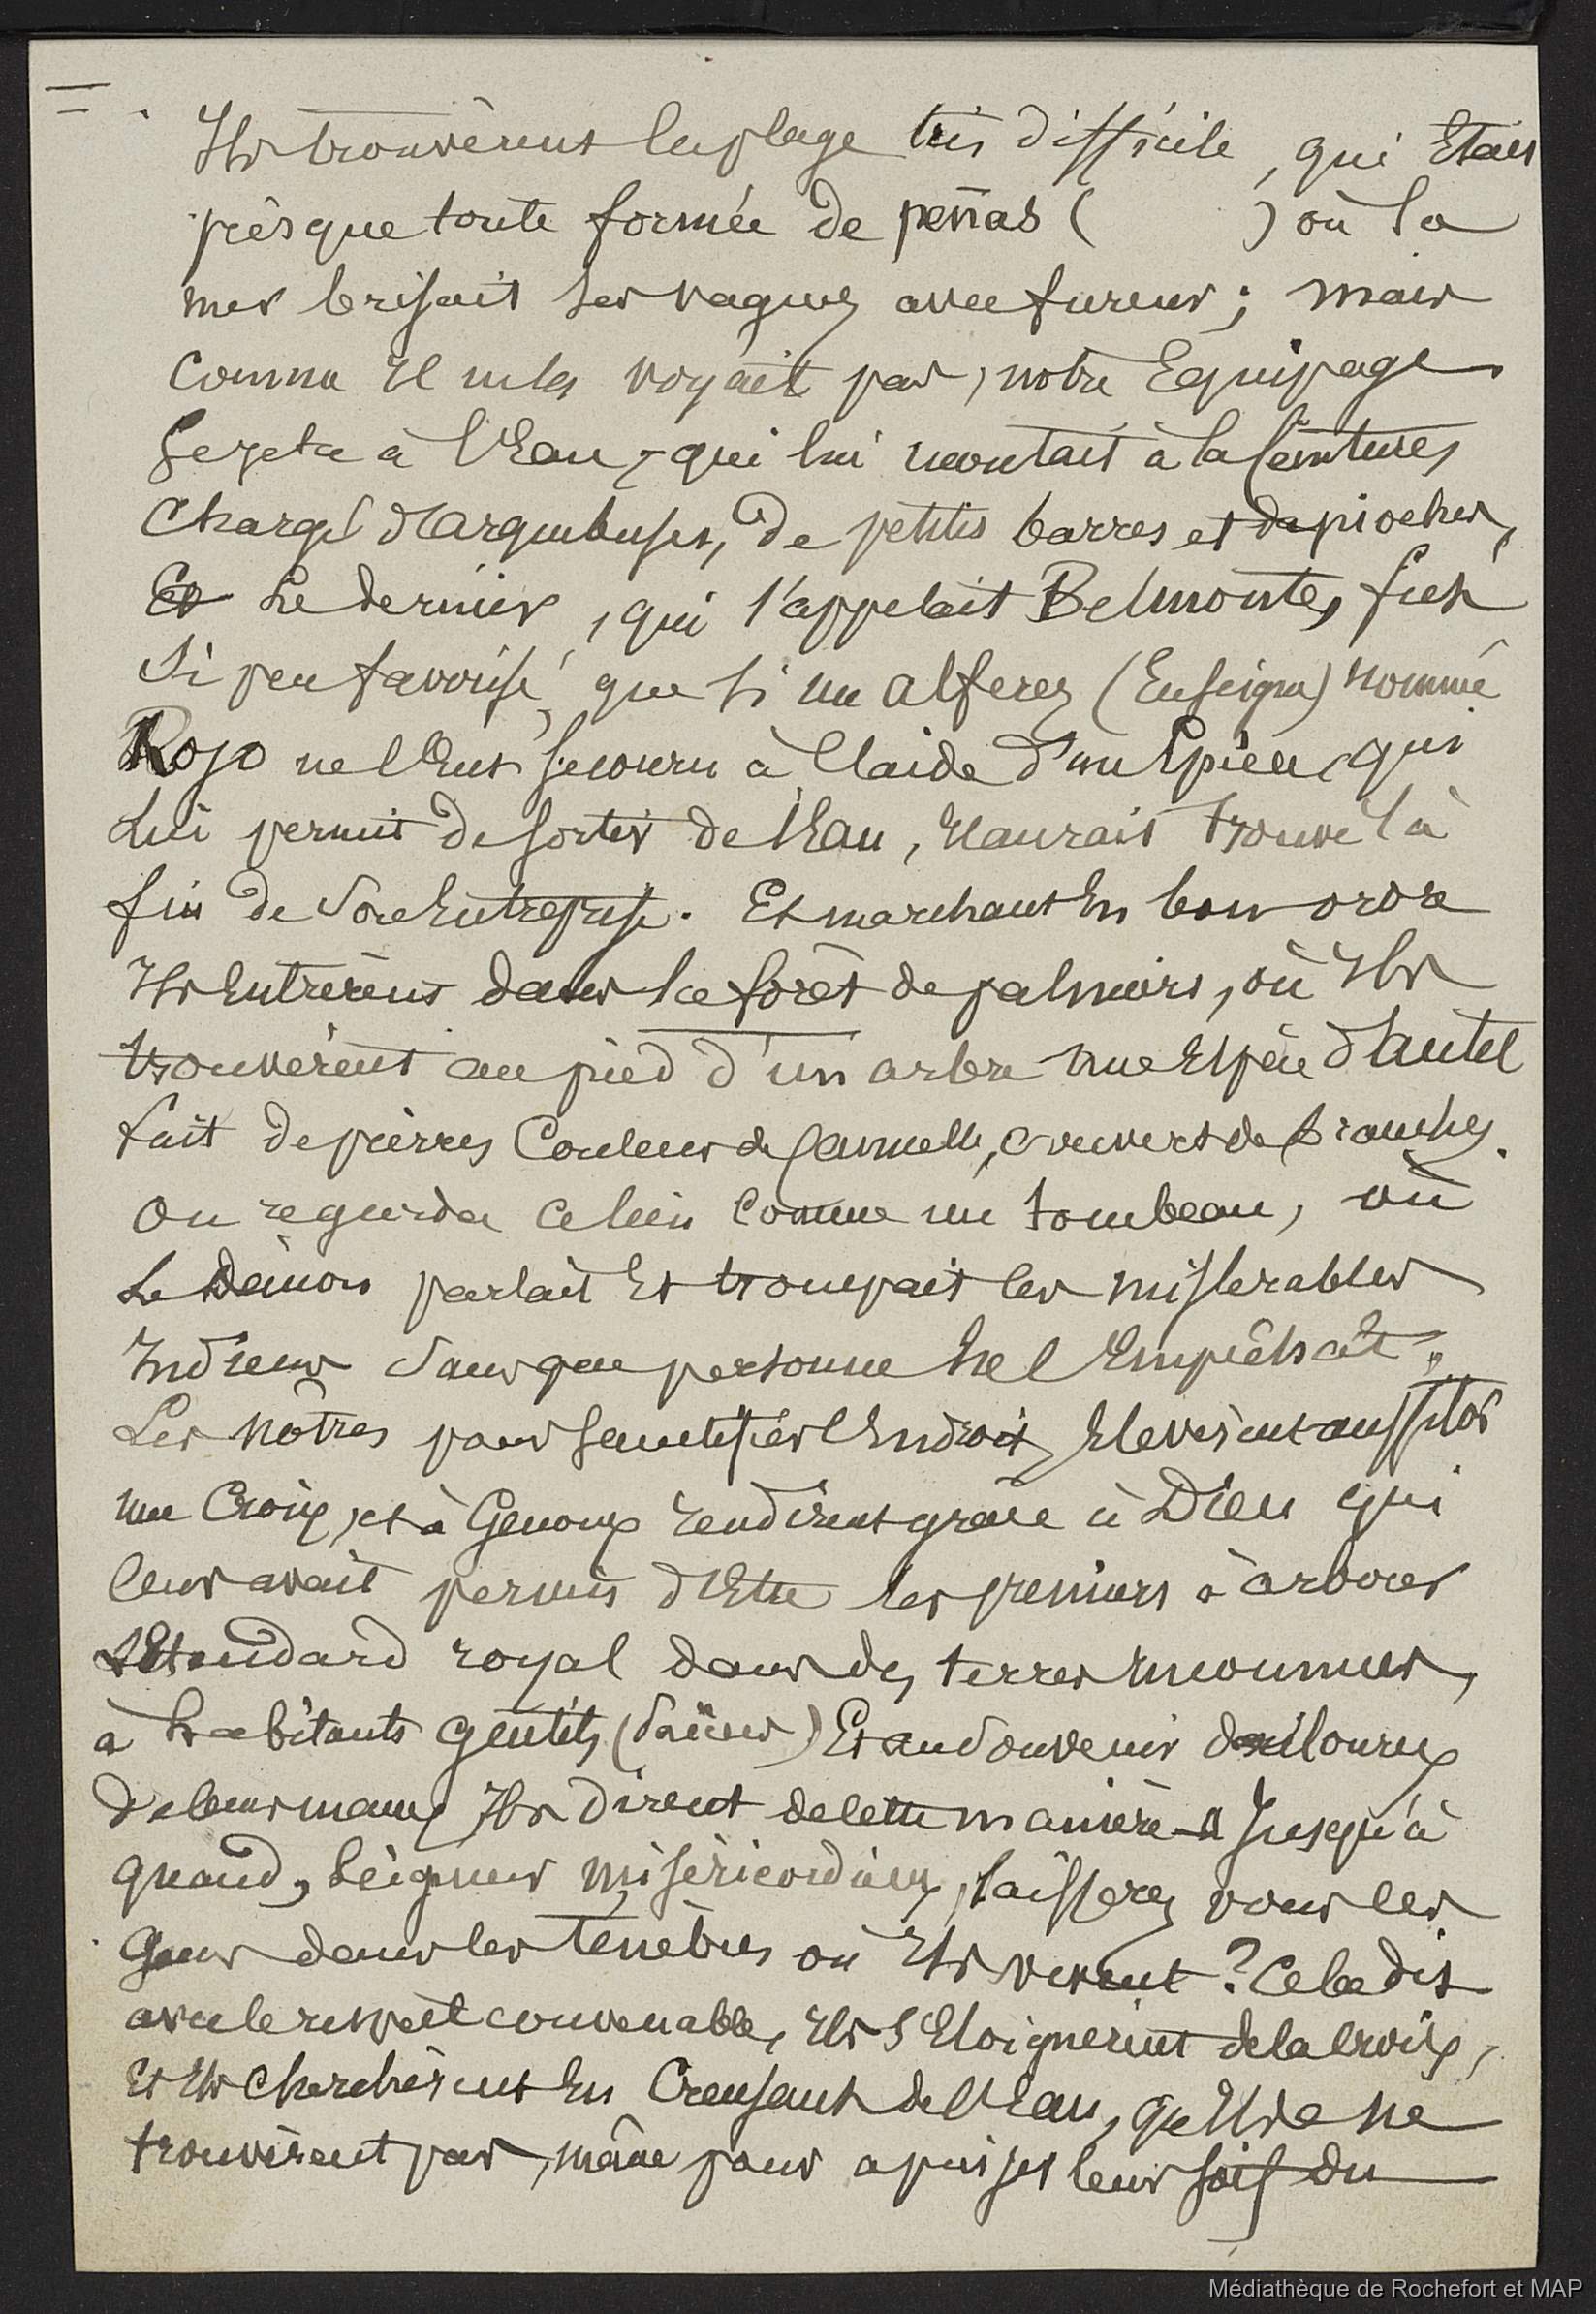 Ils trouvèrent la plage très difficile, qui était
presque toute formée de peñas (        ) où la
mer brisait ses vagues avec fureur ; mais
comme il ne les voyait pas, notre Equipage
se jeta à l'Eau, qui lui montait à la ceinture,
chargé d'arquebuses, de petites barres et de pioches,
Et le dernier, qui s'appelait Belmonte, fut
si peu favorisé, que si un alferez (Enseigne) nommé
Rojo ne l'Eut secouru à l'aide d'un Epieu, qui
lui permit de sortir de l'Eau, il aurait trouvé là
fin de son Entreprise. Et marchant En bon ordre
Ils Entrèrent dans la forêt de palmiers, où Ils
trouvèrent au pied d'un arbre une Espèce d'autel
fait de pierres Couleur de Cannelle, couvert de branches.
On regarda ce lieu comme un tombeau, où
Le Démon parlait Et trompait les misérables
Indiens sans que personne ne l'Empêchât ;
Les nôtres pour sanctifier l'Endroit, Elevèrent aussitôt
une Croix, et à Genoux rendirent grâce à Dieu qui
leur avait permis d'Etre les premiers à arborer
l'Etendard royal dans des terres inconnues,
à habitants gentils (païens) Et au souvenir douloureux
de leurs maux Ils dirent de cette manière « Jusqu'à
quand, Seigneur miséricordieux, laisserez vous les
Gens dans les ténèbres où Ils vivent ? Cela dit
avec le respect convenable, Ils s'Eloignèrent de la croix,
Et Ils cherchèrent En Creusant de l'Eau, qu'Ils ne
trouvèrent pas, même pour apaiser leur soif du
Médiathèque de Rochefort et MAP